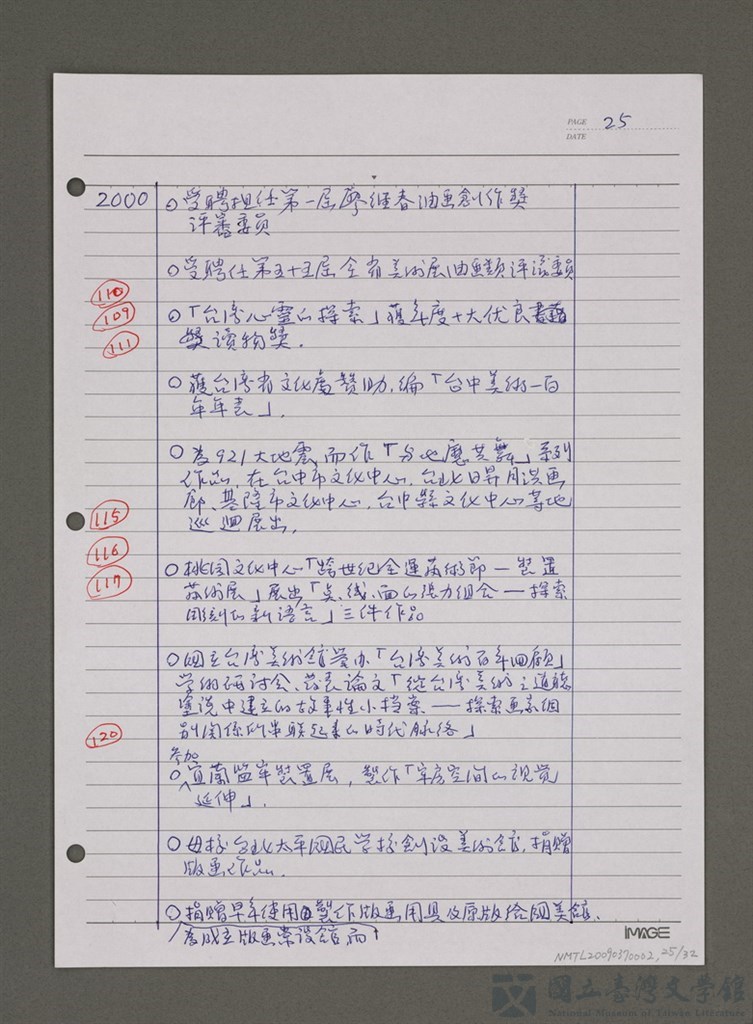 PAGE 25
DATE
2000
○受聘担任第一屆廖继春油画創作獎
評審委員
○受聘任第五十五屆全省美術展油画類評議委員
110
109
111
○「台湾心靈的探索」獲年度十大优良書籍
獎读物獎.
○獲台湾省文化處贊助,編「台中美術一百
年年表」.
○為921大地震而作「与地魔共舞」系列
作品,在台中市文化中心,台北日昇月鴻画
廊、基隆市文化中心,台中縣文化中心等地
巡迴展出.
115
116
117
○桃园文化中心「跨世紀全運藝術節—裝置
藝術展」展出「点、线、面的張力组合—探索
雕刻的新語言」三件作品
○國立台湾美術館举办「台湾美術百年回顧」
学術研讨会、發表論文「從台湾美術之道聽
塗说中建立的故事性小档案——探索画家個
別関係所串联起来的時代脉络」
120
参加
○宜蘭监牢裝置展,製作「牢房空间的視觉
延伸」.
○母校台北太平國民学校創设美術館,捐贈
版画作品.
○捐贈早年使用製作版画用具及原版给國美館.
為成立版画素设館而
IMAGE
NMTL20090370002, 25/32
國立臺灣文學館
National Museum of Taiwan Literature